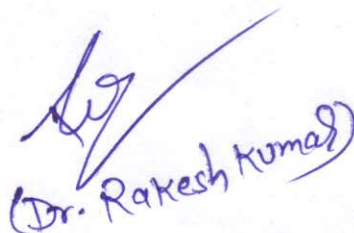 (Dr. Rakesh Kumar)